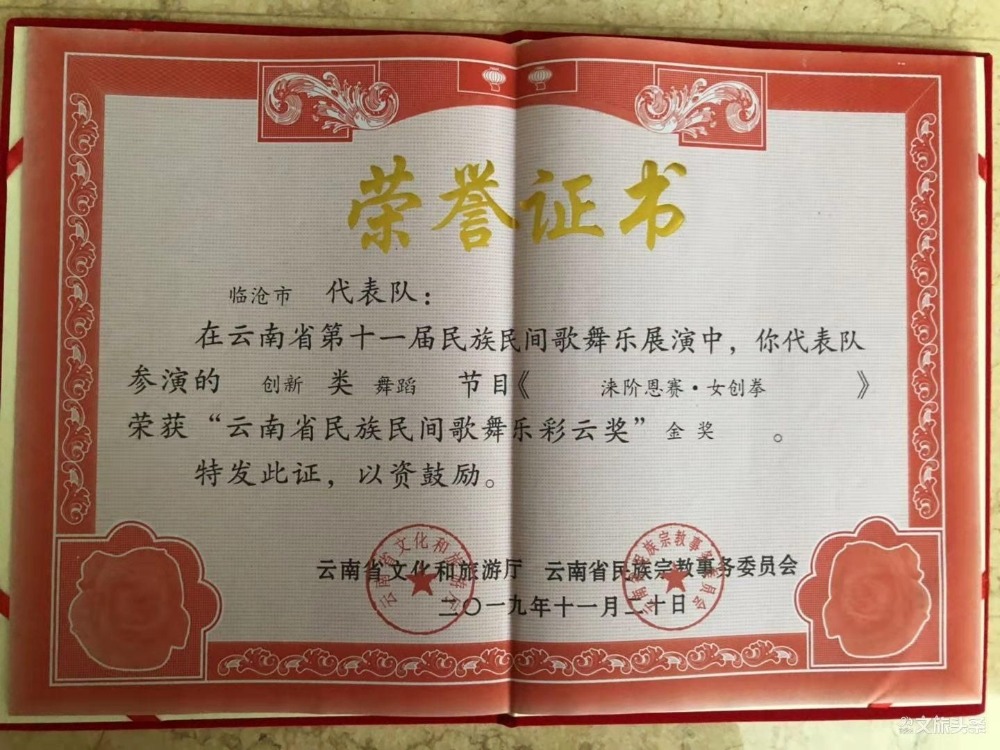 荣誉证书
临沧市 代表队：
在云南省第十一届民族民间歌舞乐展演中，你代表队
参演的 创新 类 舞蹈 节目《 涞阶恩赛·女创拳 》
荣获“云南省民族民间歌舞乐彩云奖” 金奖 。
特发此证，以资鼓励。
云南省文化和旅游厅 云南省民族宗教事务委员会
二〇一九年十一月二十日
云南省文化和旅游厅
云南省民族宗教事务委员会
文旅头条